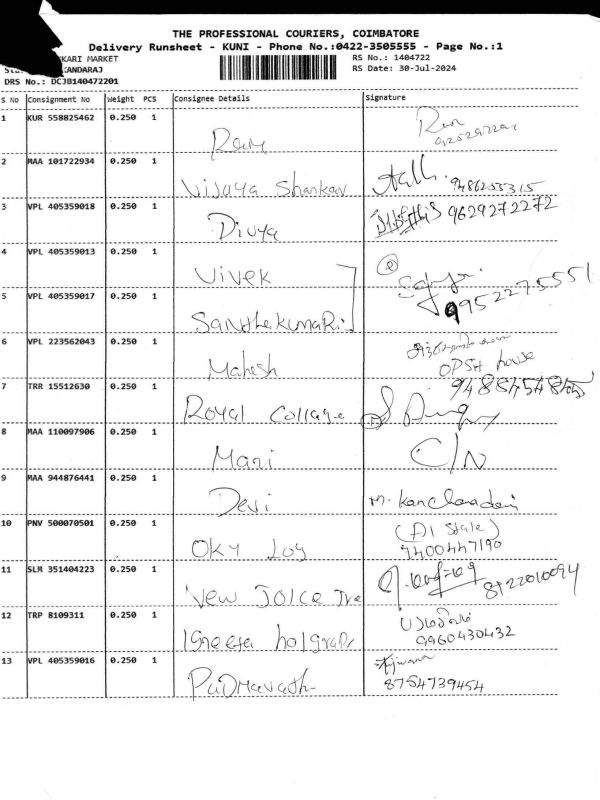 THE PROFESSIONAL COURIERS, COIMBATORE
Delivery Runsheet - KUNI - Phone No.:0422-3505555 - Page No.:1
KARI MARKET
RS No.: 1404722
KANDARAJ
RS Date: 30-Jul-2024
DRS No.: DCJB140472201
S No Consignment No Weight PCS Consignee Details Signature
1 KUR 558825462 0.250 1
Ram
2 MAA 101722934 0.250 1
Vijaya Shankar 9486255315
3 VPL 405359018 0.250 1
Divya 9629272272
4 VPL 405359013 0.250 1
Vivek
5 VPL 405359017 0.250 1
9952275551
SanthekumaRi
6 VPL 223562043 0.250 1
Mahesh
OPSH house
7 TRR 15512630 0.250 1
Royal Collage
8 MAA 110097906 0.250 1
Mani C/N
9 MAA 944876441 0.250 1
Devi M. Kanchanadevi
10 PNV 500070501 0.250 1
Oky Loy 7400447190
11 SLM 351404223 0.250 1
New Joice Tre 8122010094
12 TRP 8109311 0.250 1
9960430432
13 VPL 405359016 0.250 1
PadMavath 8754739454